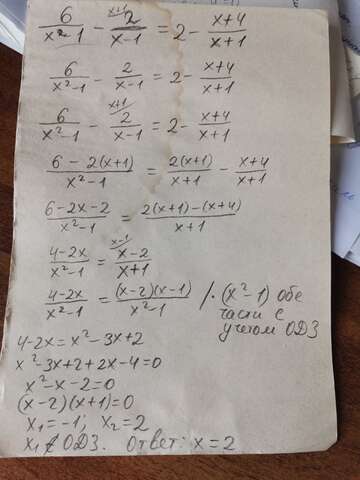 6/(x²-1) - x+1 2/(x-1) = 2 - (x+4)/(x+1)
6/(x²-1) - 2/(x-1) = 2 - (x+4)/(x+1)
6/(x²-1) - x+1 2/(x-1) = 2 - (x+4)/(x+1)
(6 - 2(x+1))/(x²-1) = 2(x+1)/(x+1) - (x+4)/(x+1)
(6-2x-2)/(x²-1) = (2(x+1)-(x+4))/(x+1)
(4-2x)/(x²-1) = x-1 (x-2)/(x+1)
(4-2x)/(x²-1) = (x-2)(x-1)/(x²-1) /· (x²-1) обе
части с
учетом ОДЗ
4-2x = x²-3x+2
x²-3x+2+2x-4=0
x²-x-2=0
(x-2)(x+1)=0
x₁=-1; x₂=2
x₁∉ОДЗ. Ответ: x=2